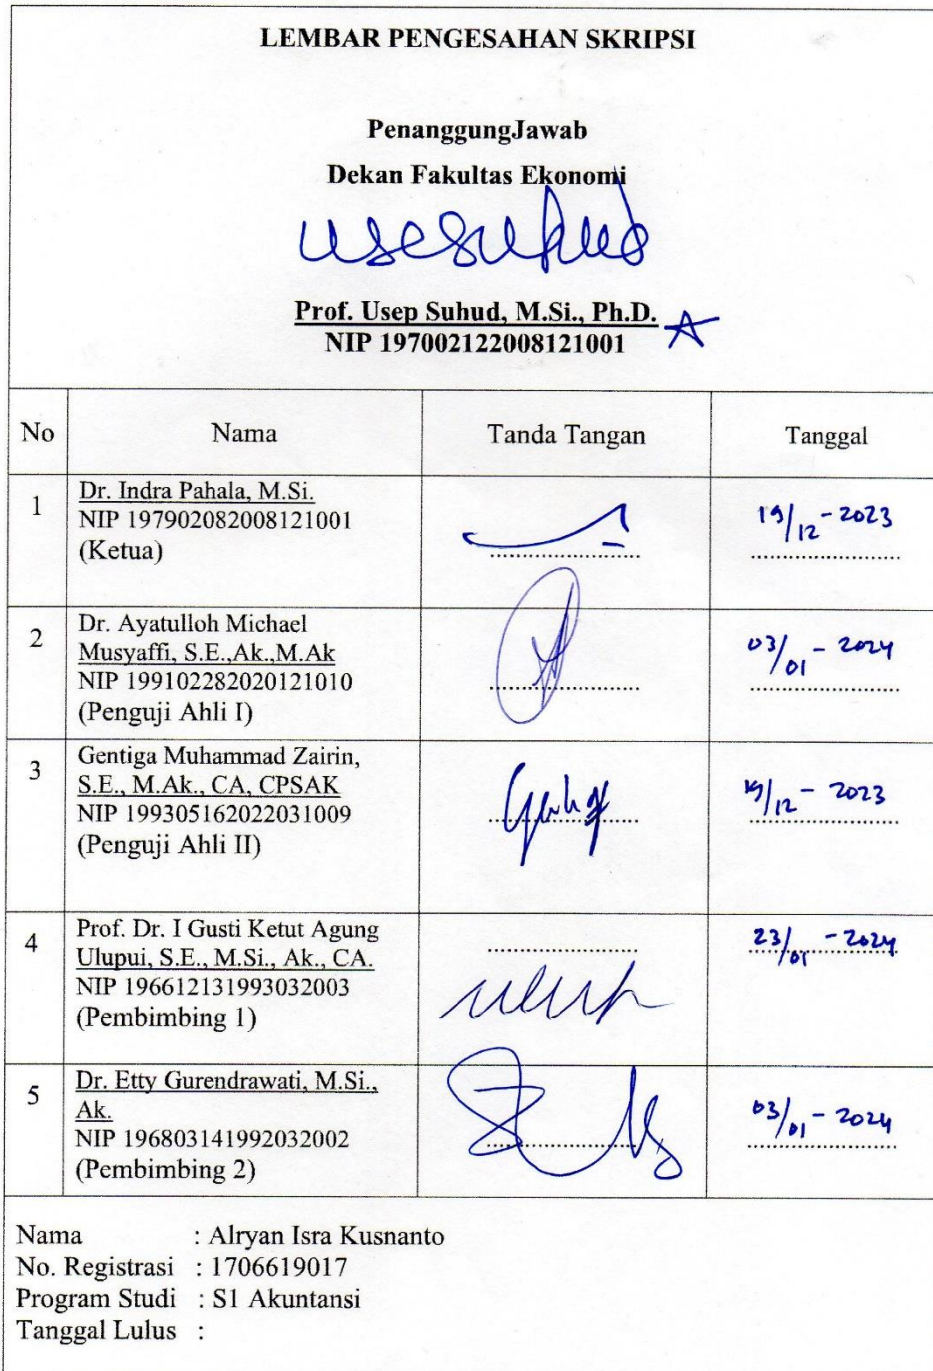 LEMBAR PENGESAHAN SKRIPSI
PenanggungJawab
Dekan Fakultas Ekonomi
Prof. Usep Suhud, M.Si., Ph.D.
NIP 197002122008121001
No Nama Tanda Tangan Tanggal
1 Dr. Indra Pahala, M.Si.
NIP 197902082008121001
(Ketua)
19/12-2023
2 Dr. Ayatulloh Michael
Musyaffi, S.E.,Ak.,M.Ak
NIP 199102282020121010
(Penguji Ahli I)
03/01 - 2024
3 Gentiga Muhammad Zairin,
S.E., M.Ak., CA, CPSAK
NIP 199305162022031009
(Penguji Ahli II)
19/12 - 2023
4 Prof. Dr. I Gusti Ketut Agung
Ulupui, S.E., M.Si., Ak., CA.
NIP 196612131993032003
(Pembimbing 1)
23/01 - 2024
5 Dr. Etty Gurendrawati, M.Si.,
Ak.
NIP 196803141992032002
(Pembimbing 2)
03/01 - 2024
Nama : Alryan Isra Kusnanto
No. Registrasi : 1706619017
Program Studi : S1 Akuntansi
Tanggal Lulus :